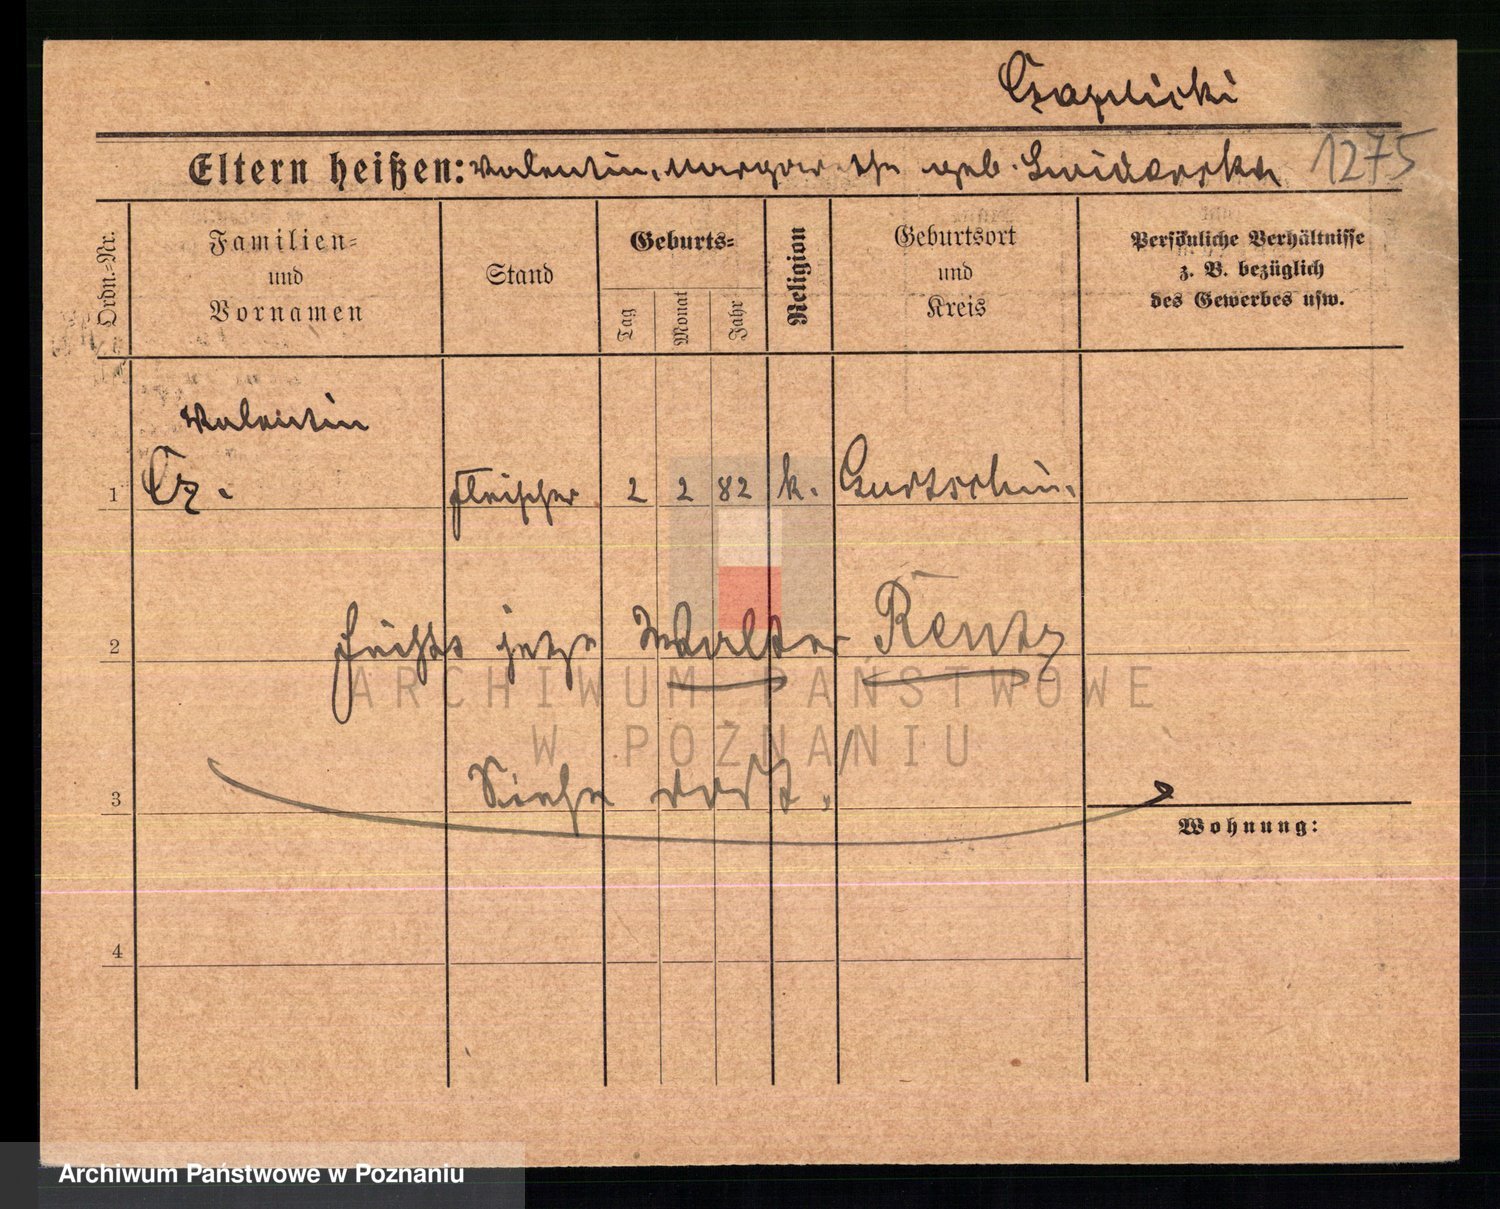 Czaplicki
1275
Eltern heißen: Valentin, Margarethe geb. Swiderska
Ordn.-Nr.
Familien-
und
Vornamen
Stand
Geburts-
Tag
Monat
Jahr
Religion
Geburtsort
und
Kreis
Persönliche Verhältnisse
z. B. bezüglich
des Gewerbes usw.
Valentin
1 Cz. Fleischer 2 2 82 k. Gurtschin.
2 jetzt Walter Rentz
3 Siehe dort.
Wohnung:
4
ARCHIWUM PAŃSTWOWE
W POZNANIU
Archiwum Państwowe w Poznaniu